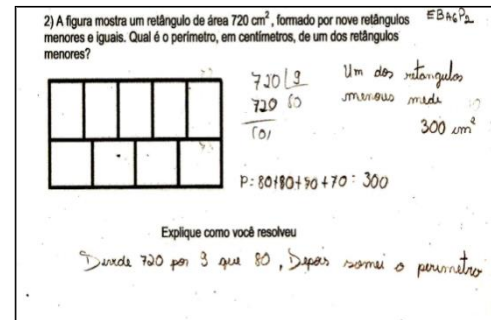 2) A figura mostra um retângulo de área 720 cm², formado por nove retângulos EBAGP2
menores e iguais. Qual é o perímetro, em centímetros, de um dos retângulos
menores?
720 | 9 Um dos retangulos
720 80 menores mede
(0) 300 cm²
P: 80+80+90+70 = 300
Explique como você resolveu
Divide 720 por 9 que 80, Depois somei o perimetro